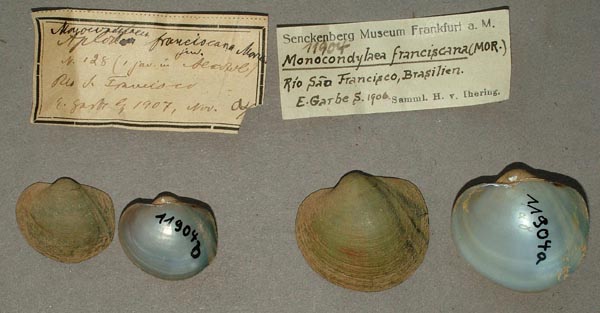 Monocondylaea
Aplodon franciscana Moric.
N. 128 (1 juv. in Alcohol)
Rio S. Francisco
E. Garbe G 1907, Nov.
Senckenberg Museum Frankfurt a. M.
11904
Monocondylaea franciscana (MOR.)
Río São Francisco, Brasilien.
E. Garbe S. 1906. Samml. H. v. Ihering.
11904b
11904a